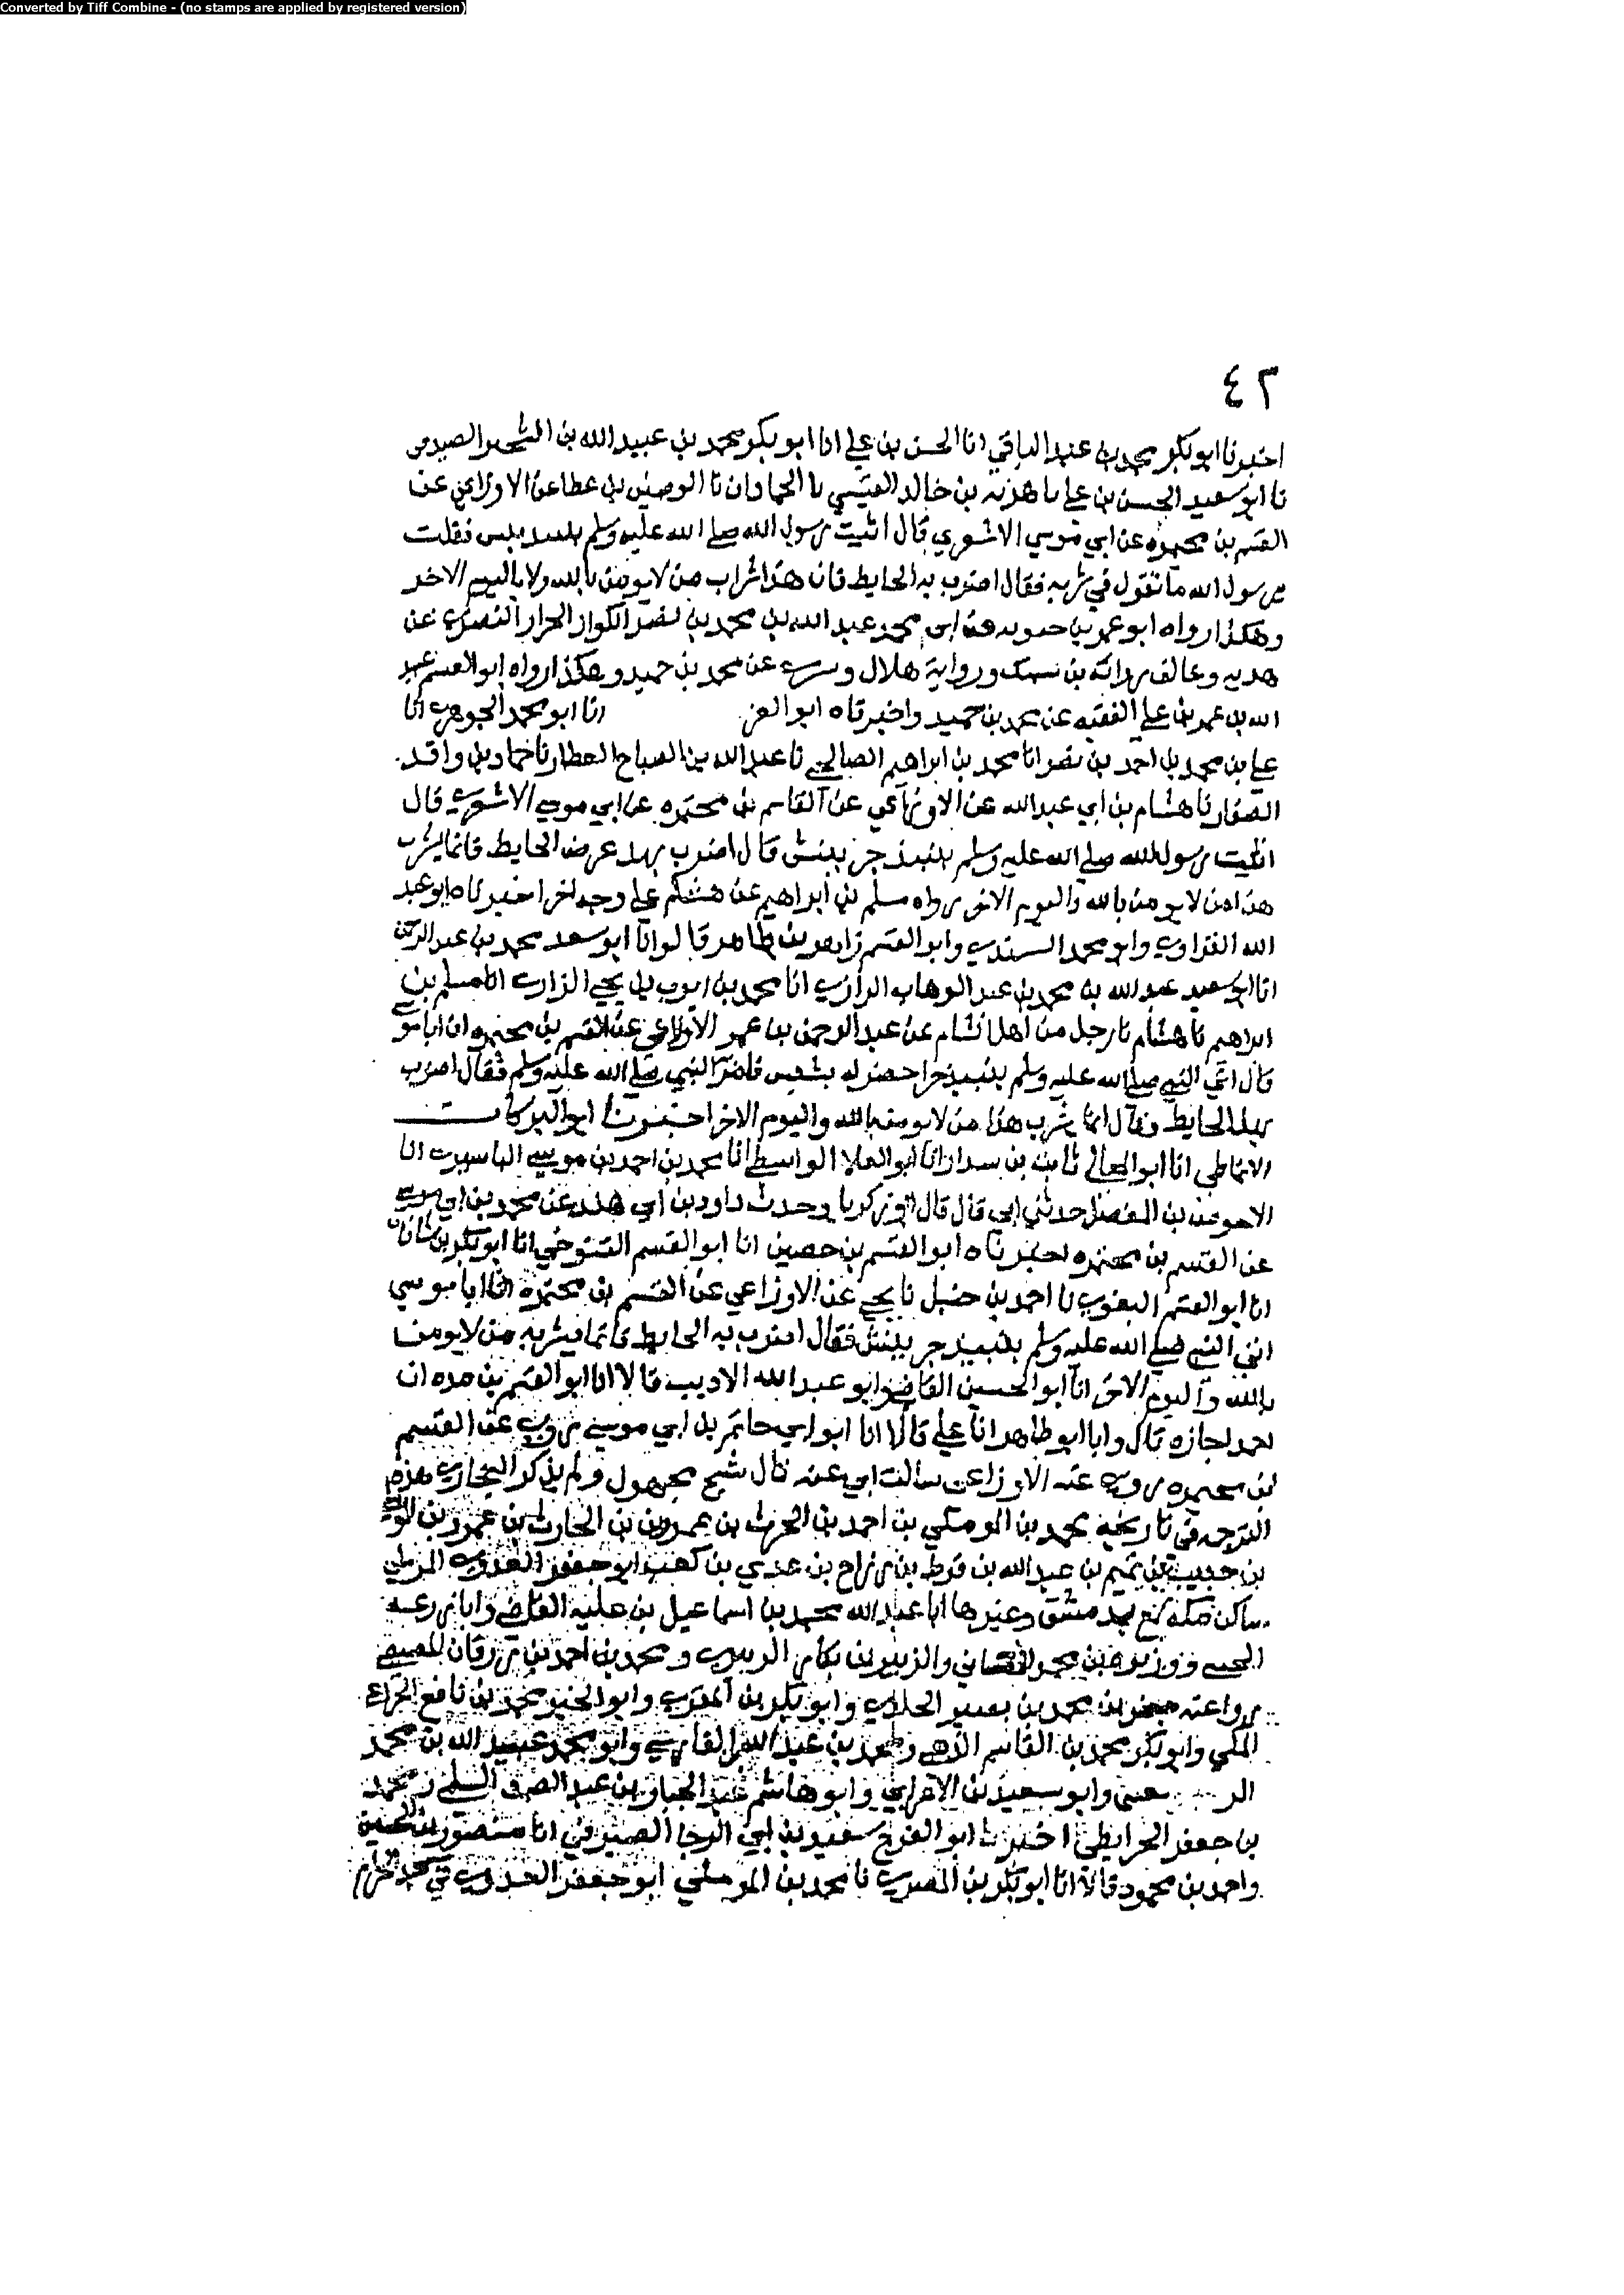 Converted by Tiff Combine - (no stamps are applied by registered version)
٤٢
اخبرنا ابو بكر محمد بن عبد الباقي انا الحسن بن علي انا ابو بكر محمد بن عبيد الله بن الشخير الصيرفي
نا ابو سعيد الحسن بن علي نا هدبه بن خالد القيسي نا الحمادان نا الوضين بن عطا عن الاوزاعي عن
القسم بن مخيمره عن ابي موسي الاشعري قال اتيت رسول الله صلي الله عليه وسلم فقلت
يرسول الله ما تقول في شربه فقال اضرب به الحايط فان هذا شراب من لا يومن بالله ولا باليوم الاخر
وهكذا رواه ابو عمر بن حيويه عن ابي محمد عبد الله بن محمد بن نصر عن
هدبه بن ورواية هلال عن محمد بن حميد وهكذا رواه ابو القسم عبد
الله بن عمر بن علي الفقيه عن محمد بن حميد واخبرناه ابو العز انا ابو محمد الجوهري انا
علي بن محمد بن احمد بن نصر انا محمد بن ابراهيم الصالحي نا عبد الله بن الصباح العطار نا حماد بن واقد
الصفار نا هشام بن ابي عبد الله عن الاوزاعي عن القاسم بن مخيمره عن ابي موسي الاشعري قال
اتيت رسول الله صلي الله عليه وسلم بنبيذ جر ينش قال اضرب بهذ عرض الحايط فانما يشرب
هذا من لا يومن بالله واليوم الاخر رواه مسلم بن ابراهيم عن هشام علي وجه اخر اخبرناه ابو عبد
الله الفراوي وابو محمد السندي وابو القسم زاهر بن طاهر قالوا انا ابو سعد محمد بن عبد الرحمن
انا ابو سعيد عبد الله بن محمد بن عبد الوهاب الرازي انا محمد بن ايوب بن يحيي الرازي انا مسلم بن
ابراهيم نا هشام نا رجل من اهل الشام عن عبد الرحمن بن عمر الاوزاعي عن القسم بن مخيمره ان ابا موسي
قال اتي النبي صلي الله عليه وسلم بنبيذ جر اخضر له نشيش فامر النبي صلي الله عليه وسلم فقال اضرب
بهذا الحايط وقال انما يشرب هذا من لا يومن بالله واليوم الاخر اخبرنا ابو البركات
الانماطي انا ابو المعالي ثابت بن بندار انا ابو العلا الواسطي انا محمد بن احمد بن موسي البابسيري انا
الاحوص بن المفضل حدثني ابي قال قال ابو زكريا وحدث داود بن ابي هند عن محمد بن ابي موسي
عن القسم بن مخيمره اخبرناه ابو القسم بن حصين انا ابو القسم التنوخي انا ابو بكر بن شاذان
انا ابو القسم البغوي نا احمد بن حنبل نا يحيي عن الاوزاعي عن القسم بن مخيمره ان ابا موسي
اتي النبي صلي الله عليه وسلم بنبيذ جر ينش فقال اضرب به الحايط فانما يشربه من لا يومن
بالله واليوم الاخر انا ابو الحسين القاضي وابو عبد الله الاديب قالا انا ابو القسم بن منده انا
حمد اجازه قال وانا ابو طاهر انا علي قالا انا ابن ابي حاتم بن ابي موسي روي عن القسم
بن مخيمره روي عنه الاوزاعي سالت ابي عنه قال شيخ مجهول ولم يذكر البخاري هذه
الترجمه في تاريخه محمد بن الموملي بن احمد بن الحرث بن عمرو بن الحارث بن عمرو بن
بن حبيب بن تميم بن عبد الله بن قرط بن رزاح بن عدي بن كعب ابو جعفر العدوي
ساكن مكه سمع بدمشق وغيرها ابا عبد الله محمد بن اسماعيل بن عليه القاضي وابا زرعه
والزبير بن بكار الزبيري ومحمد بن احمد بن رزقان المصيصي
روا عنه جعفر بن محمد بن نصير الخلدي وابو بكر بن المقري وابو الخير محمد بن نافع الخزاعي
المكي وابو بكر محمد بن القاسم وابو محمد عبيد الله بن محمد
وابو سعيد بن الاعرابي وابو هاشم عبد الجبار بن عبد الصمد السلمي ومحمد
بن جعفر الخرايطي اخبرنا ابو الفرج سعيد بن ابي الرجا الصيرفي انا منصور بن الحسين
واحمد بن محمود قالا انا ابو بكر بن المقري نا محمد بن الموملي ابو جعفر العدوي في مسجد الحرام